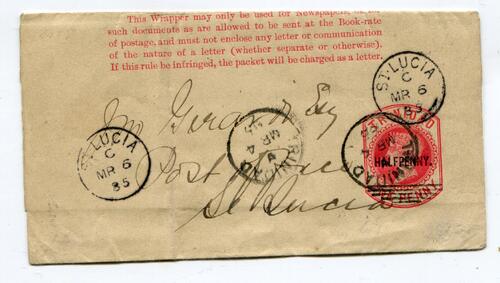 This Wrapper may only be used for Newspapers, or
such documents as are allowed to be sent at the Book-rate
of postage, and must not enclose any letter or communication
of the nature of a letter (whether separate or otherwise).
If this rule be infringed, the packet will be charged as a letter.
ST. LUCIA
C
MR 6
85
TRINIDAD
HALFPENNY.
PENNY
TRINIDAD
A
MR 4
85
TRINIDAD
MR 4
85
ST. LUCIA
C
MR 6
85
Esq
Post Office
St Lucia